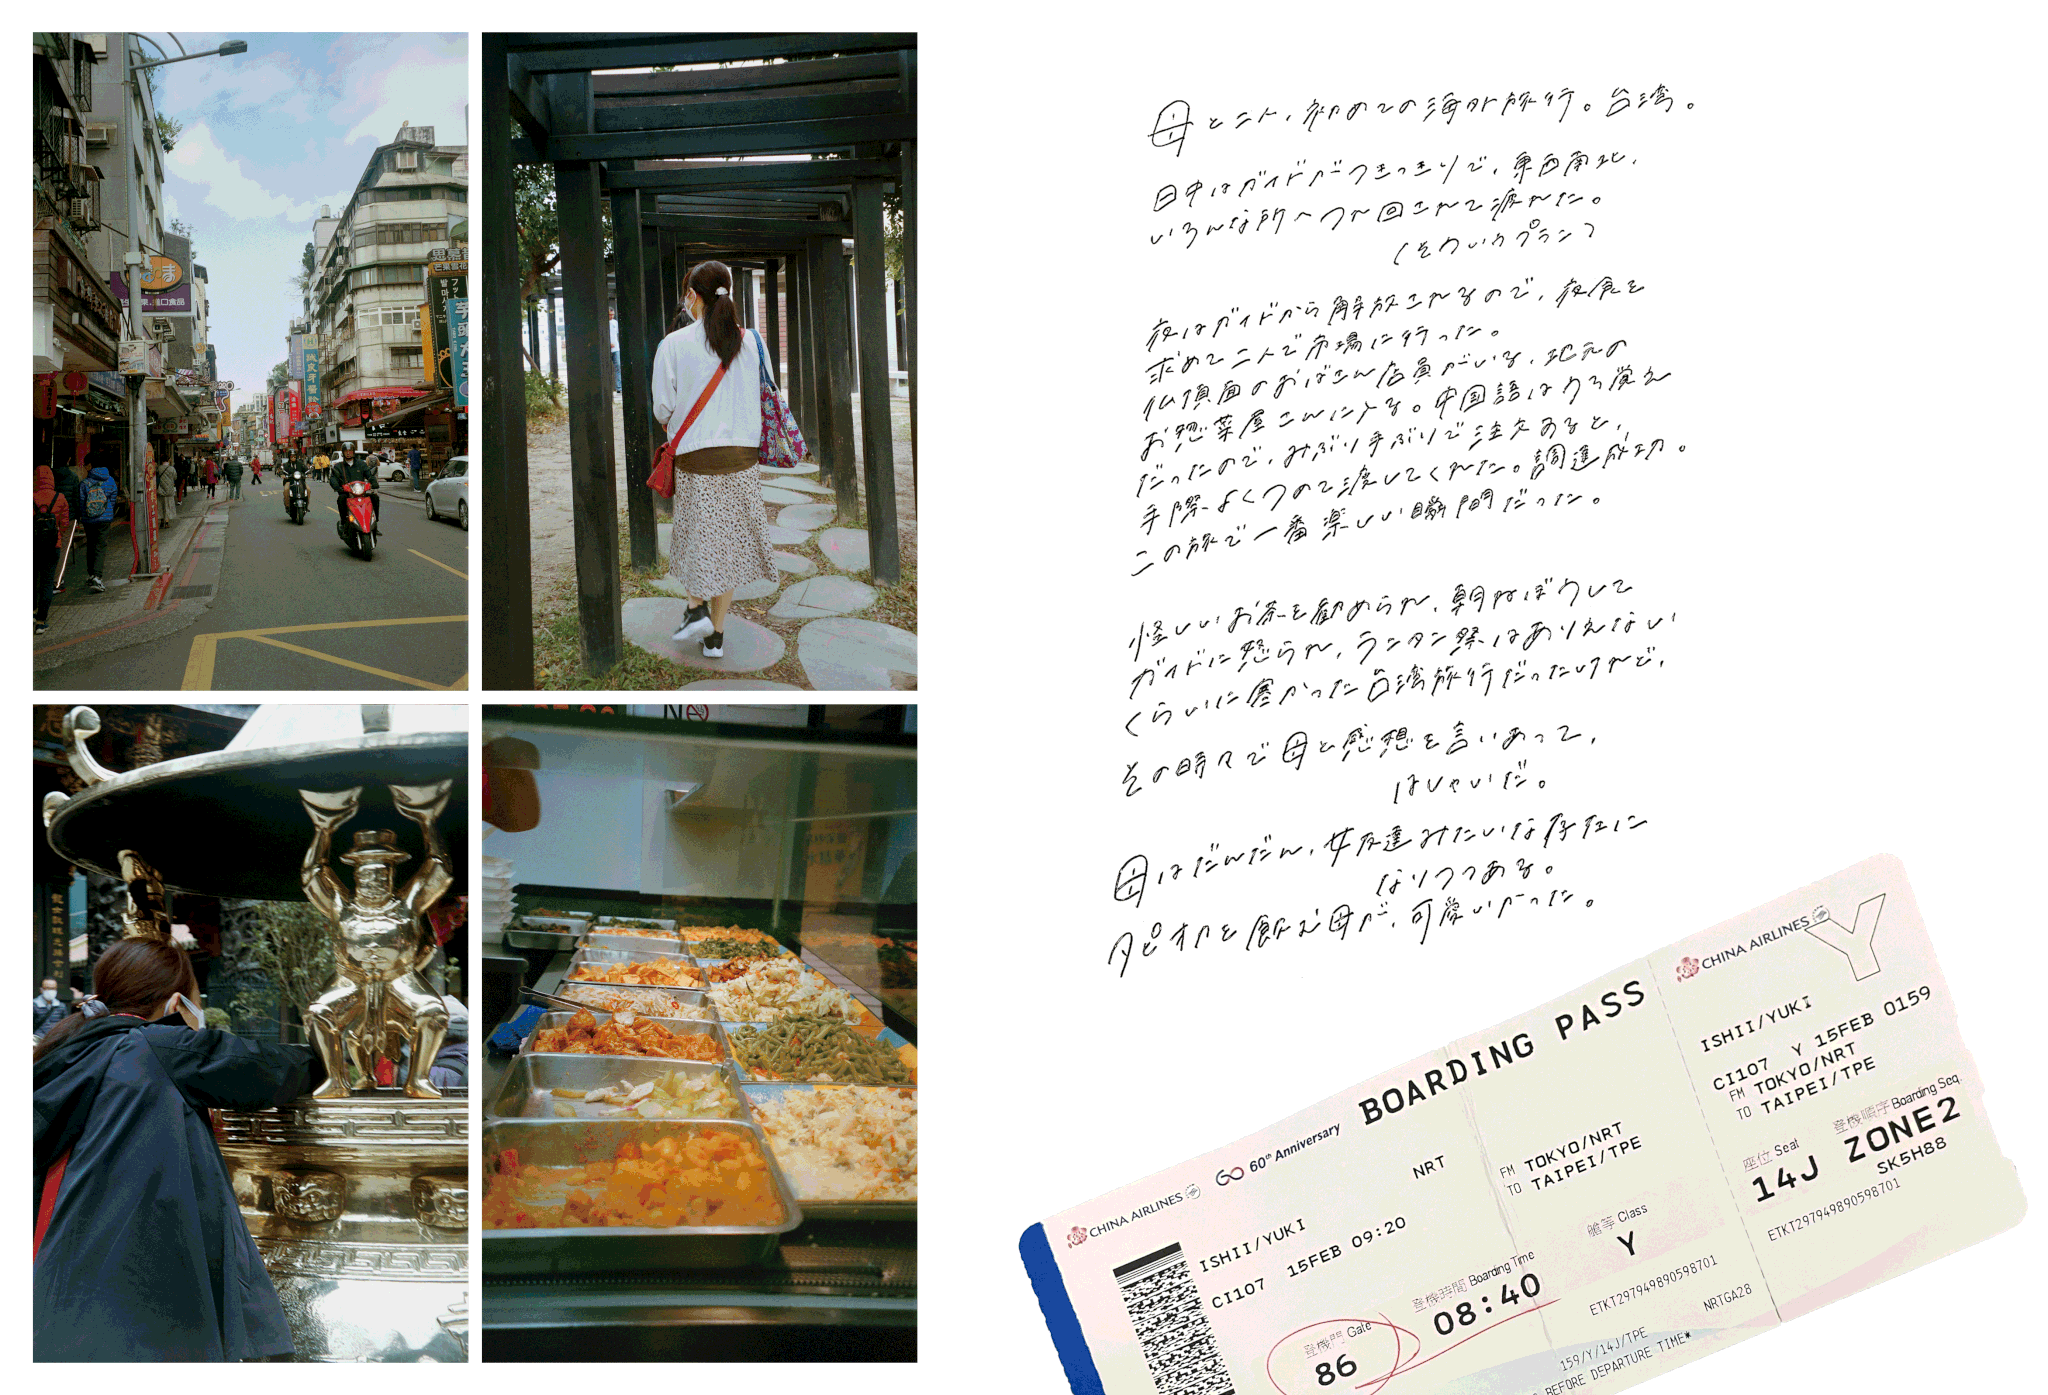 母と二人、初めての海外旅行。台湾。
日中はガイドがつきっきりで、東西南北、
いろんな所へつれ回されて疲れた。
(そういうプラン)
夜はガイドから解放されるので、夜食を
求めて二人で市場に行った。
仏頂面のおばさん店員がいる、地元の
お惣菜屋さんに入る。中国語はうろ覚え
だったので、みぶり手ぶりで注文すると、
手際よくつめて渡してくれた。調達成功。
この旅で一番楽しい瞬間だった。
怪しいお茶を勧められ、朝ねぼうして
ガイドに怒られ、ランタン祭はありえない
くらいに寒かった台湾旅行だったけれど、
その時々で母と感想を言いあって、
はしゃいだ。
母はだんだん、女友達みたいな存在に
なりつつある。
タピオカを飲む母が、可愛いかった。
CHINA AIRLINES
60th Anniversary
BOARDING PASS
ISHII/YUKI
NRT
CI107 15FEB 09:20
FM TOKYO/NRT
TO TAIPEI/TPE
登機門 Gate
86
登機時間 Boarding Time
08:40
艙等 Class
Y
ETKT297949890598701
NRTGA28
159/Y/14J/TPE
BEFORE DEPARTURE TIME*
CHINA AIRLINES
Y
ISHII/YUKI
CI107 Y 15FEB 0159
FM TOKYO/NRT
TO TAIPEI/TPE
座位 Seat
14J
登機順序 Boarding Seq.
ZONE2
SK5H88
ETKT297949890598701